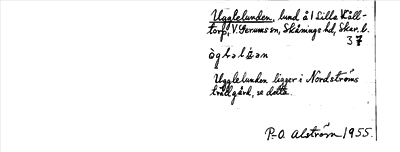 Ugglelunden, lund å 1 Lilla Käll-
torp, V. Gerums sn, Skånings hd, Skar. l.
37
Ugglelunden ligger i Nordströms
trädgård, se detta.
P-O. Alström 1955.